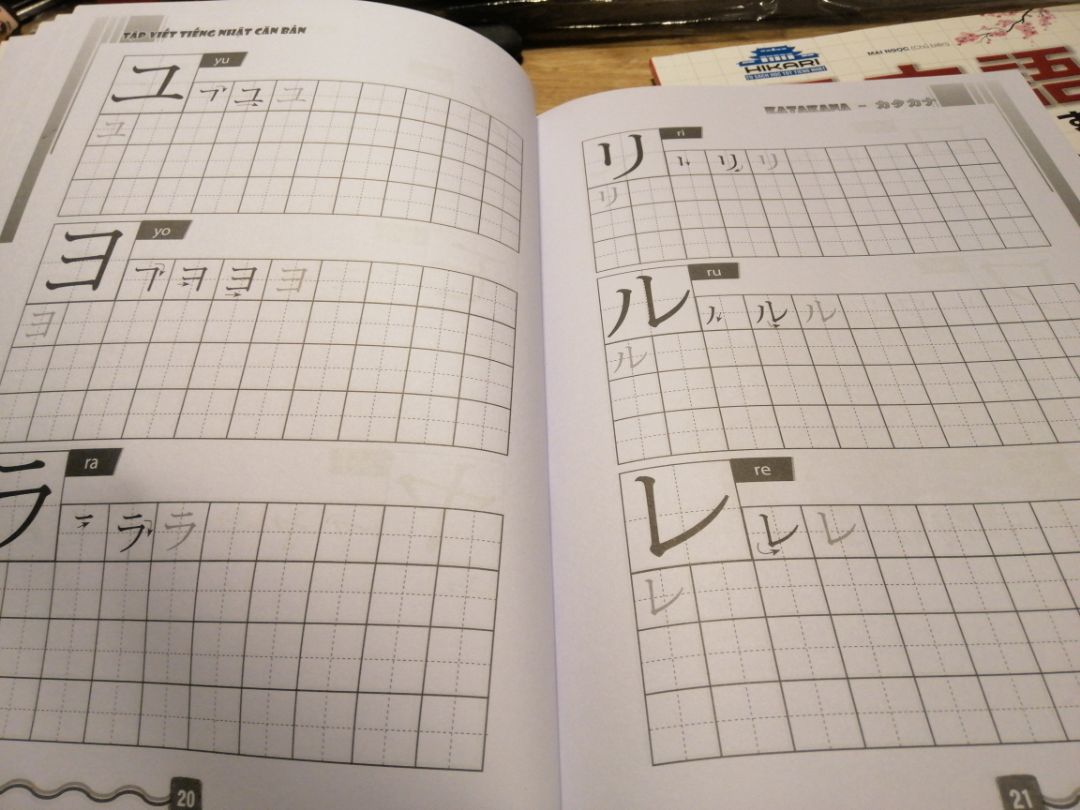 TẬP VIẾT TIẾNG NHẬT CĂN BẢN
ユ yu
フ ユ ユ
ユ
ヨ yo
フ ヲ ヨ ヨ
ヨ
ラ ra
一 ラ ラ
20
MAI NGỌC (Chủ biên)
HIKARI
語
KATAKANA - カタカナ
リ ri
リ リ
リ
ル ru
ノ ル ル
ル
レ re
レ レ
レ
21